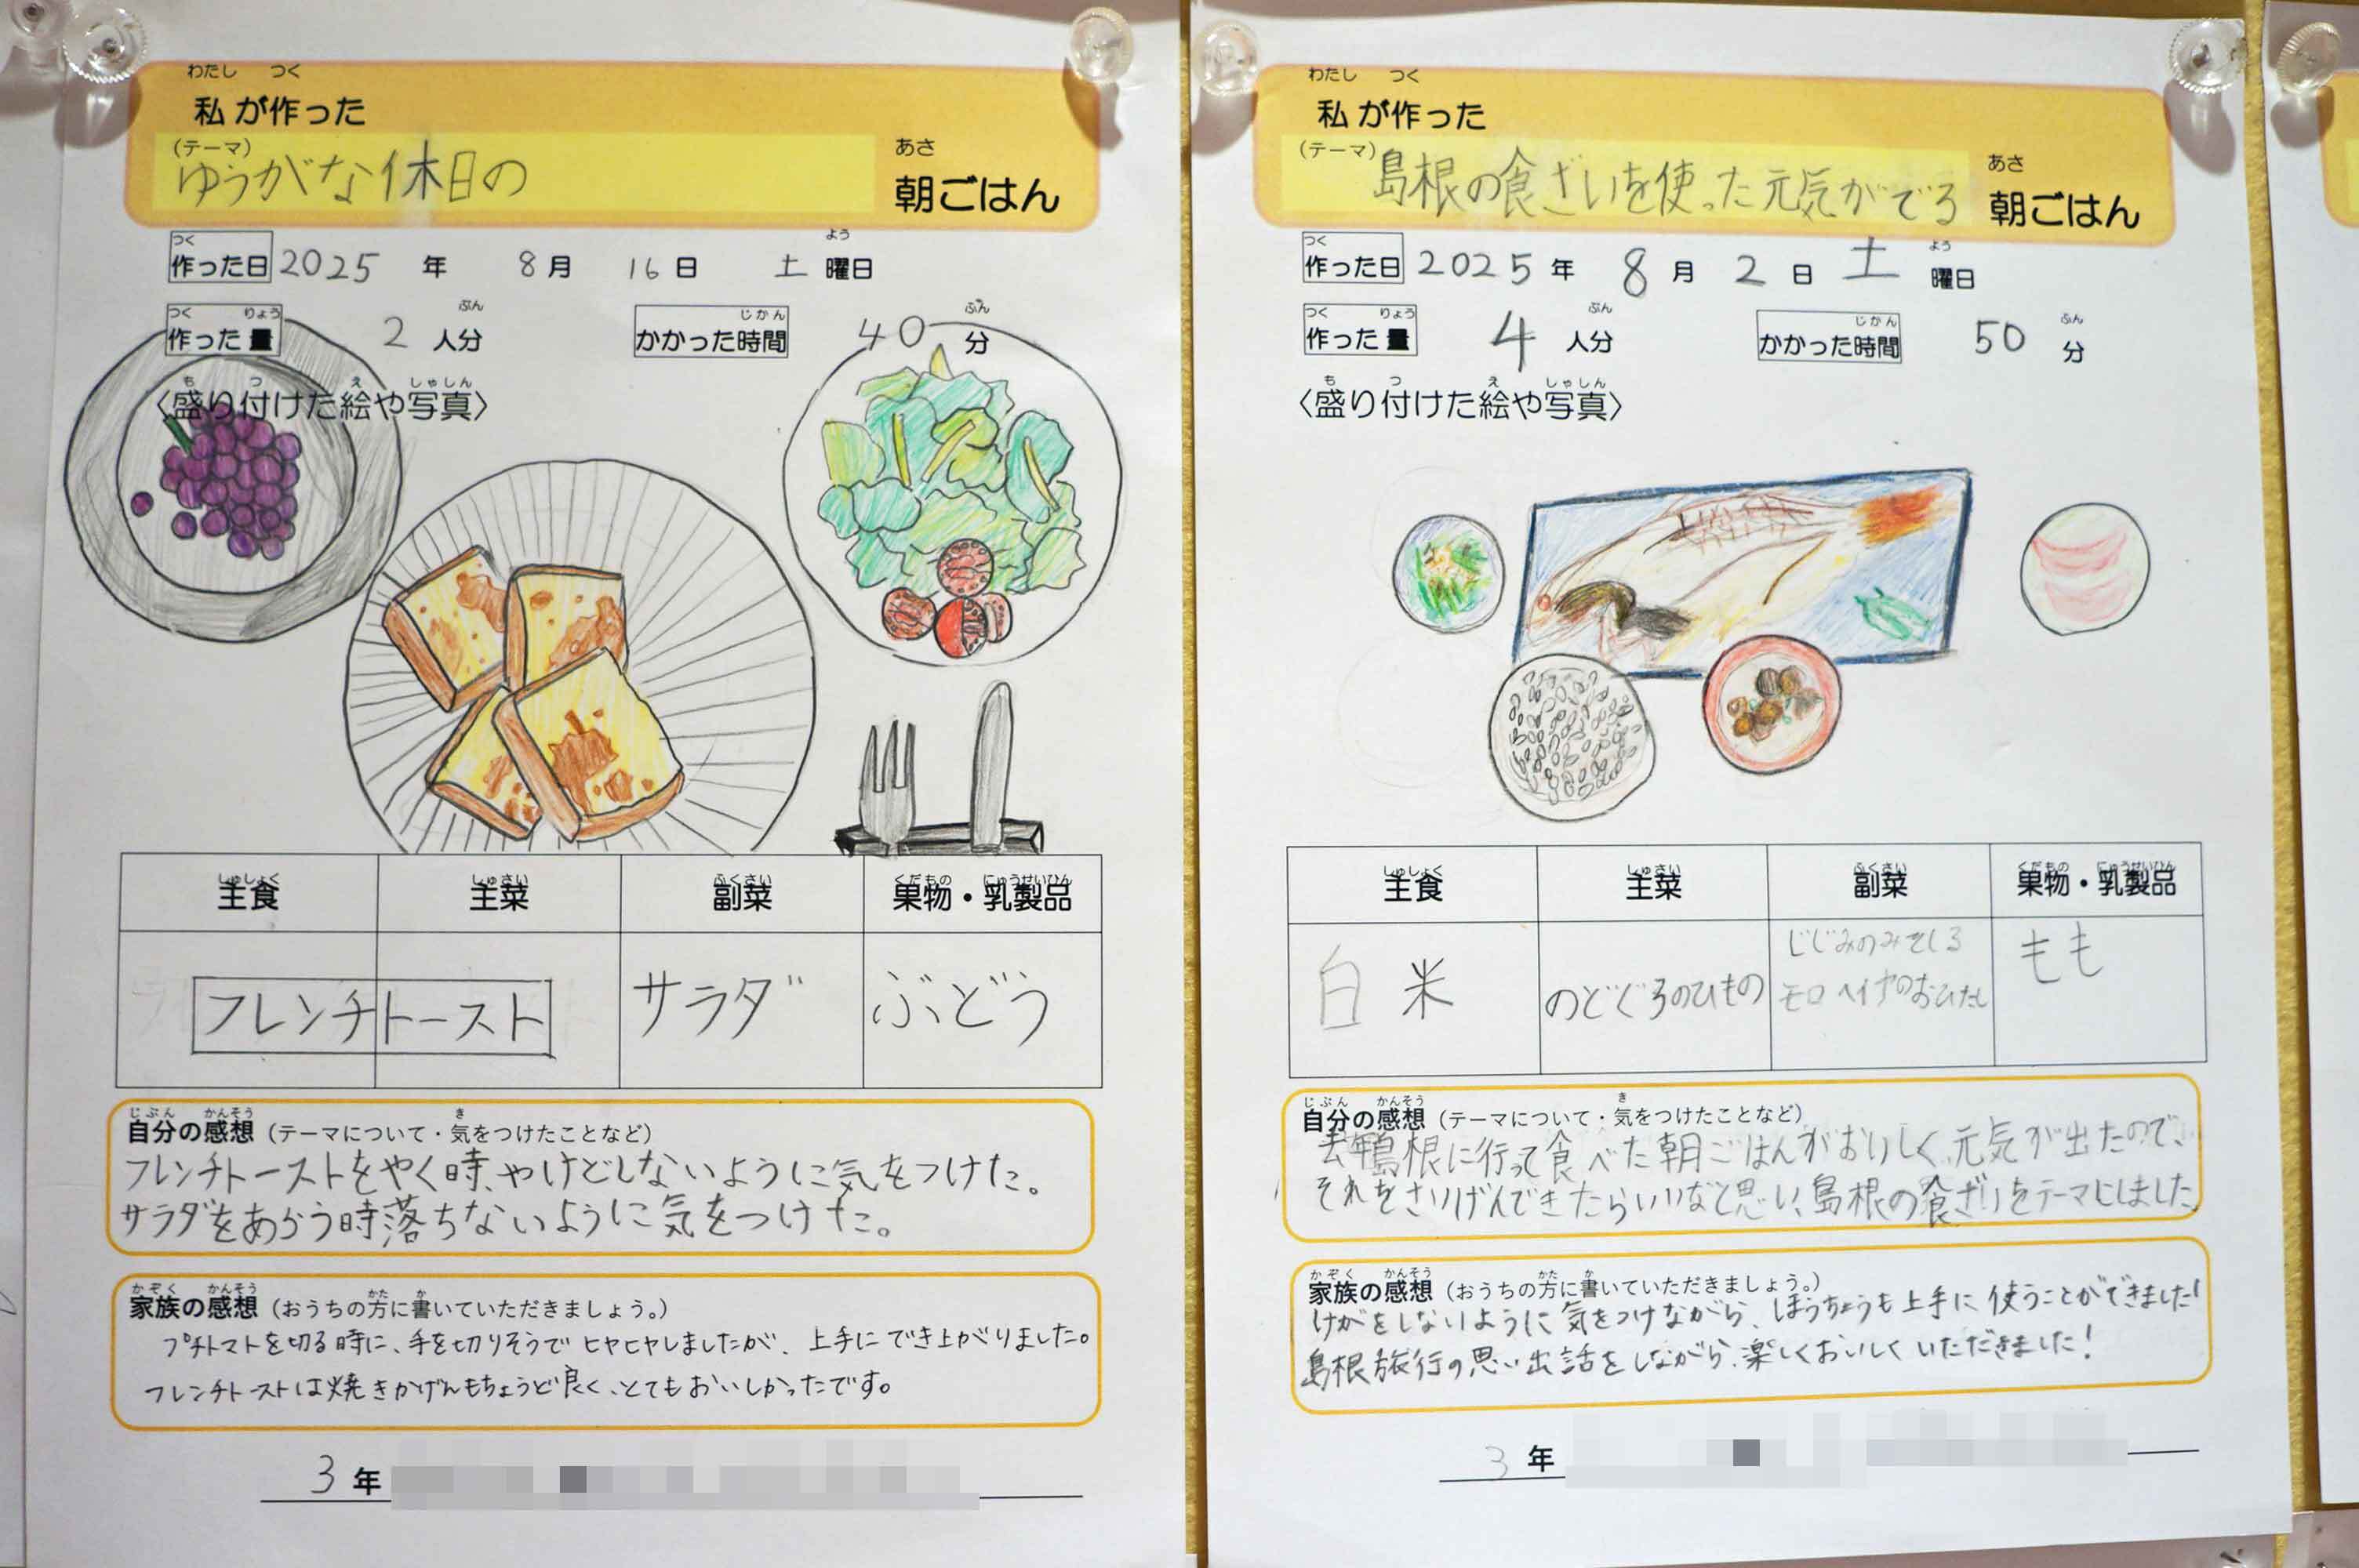 わたし つく
私が作った
(テーマ)
ゆうがな休日の
あさ
朝ごはん
つく よう
作った日 2025 年 8 月 16 日 土 曜日
つく りょう ぶん じかん ぷん
作った量 2 人分 かかった時間 40 分
も つ え しゃしん
〈盛り付けた絵や写真〉
しゅしょく しゅさい ふくさい くだもの にゅうせいひん
主食 主菜 副菜 果物・乳製品
フレンチトースト サラダ ぶどう
じぶん かんそう き
自分の感想（テーマについて・気をつけたことなど）
フレンチトーストをやく時、やけどしないように気をつけた。
サラダをあらう時落ちないように気をつけた。
かぞく かんそう かた か
家族の感想（おうちの方に書いていただきましょう。）
プチトマトを切る時に、手を切りそうでヒヤヒヤしましたが、上手にでき上がりました。
フレンチトーストは焼きかげんもちょうど良く、とてもおいしかったです。
3 年
わたし つく
私が作った
(テーマ)
島根の食ざいを使った元気がでる
あさ
朝ごはん
つく よう
作った日 2025 年 8 月 2 日 土 曜日
つく りょう ぶん じかん ぷん
作った量 4 人分 かかった時間 50 分
も つ え しゃしん
〈盛り付けた絵や写真〉
しゅしょく しゅさい ふくさい くだもの にゅうせいひん
主食 主菜 副菜 果物・乳製品
白米 のどぐろのひもの じじみのみそしる もも
モロヘイヤのおひたし
じぶん かんそう き
自分の感想（テーマについて・気をつけたことなど）
去年島根に行って食べた朝ごはんがおいしく、元気が出たので、
それをさいげんできたらいいなと思い、島根の食ざいをテーマにしました。
かぞく かんそう かた か
家族の感想（おうちの方に書いていただきましょう。）
けがをしないように気をつけながら、ほうちょうも上手に使うことができました!
島根旅行の思い出話をしながら、楽しくおいしくいただきました!
3 年